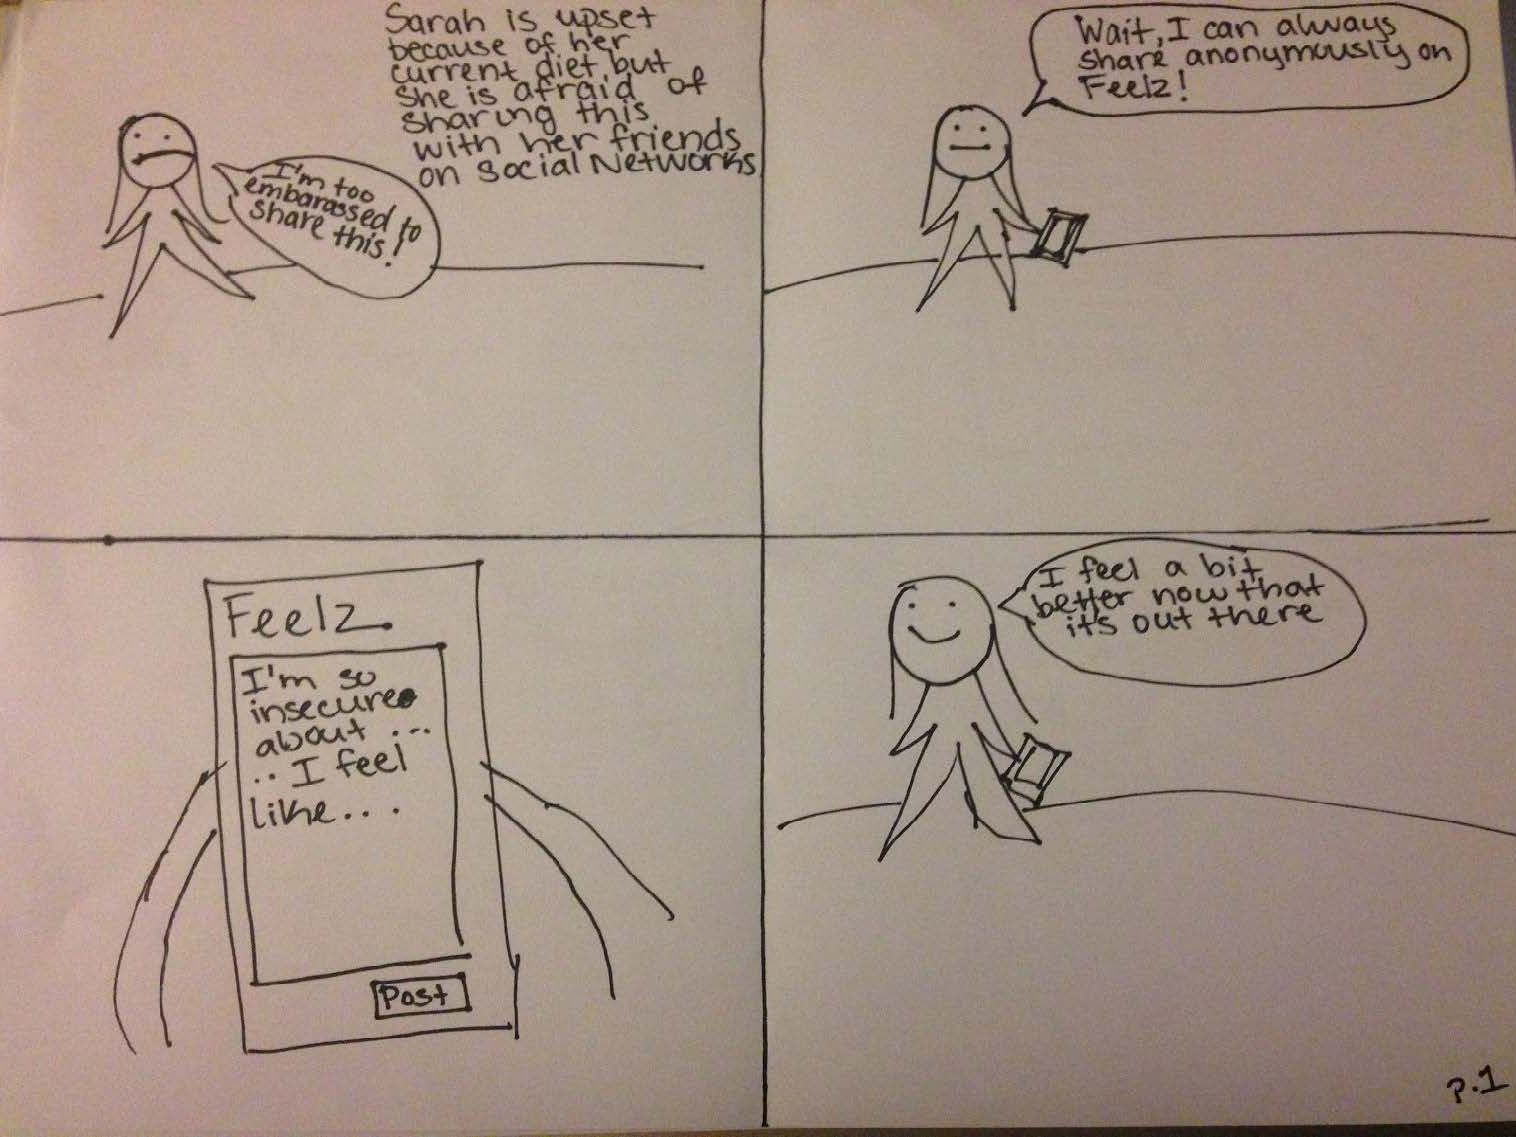 Sarah is upset
because of her
current diet, but
she is afraid of
sharing this
with her friends
on social Networks
I'm too
embarassed to
share this!
Wait, I can always
share anonymously on
Feelz!
Feelz.
I'm so
insecure
about ...
.. I feel
like....
Post
I feel a bit
better now that
it's out there
p.1